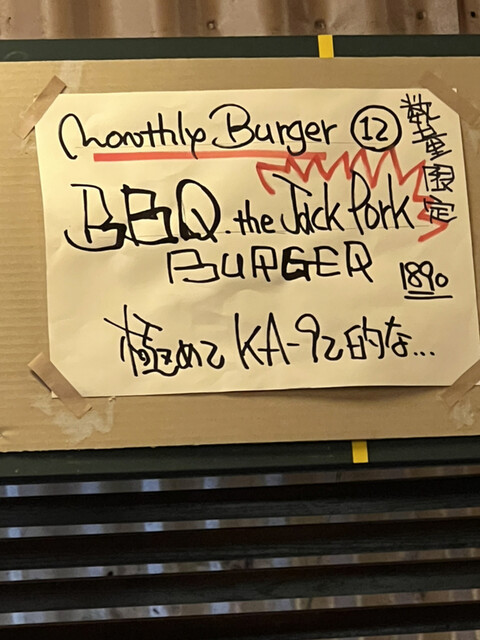 Monthly Burger ⑫
数量限定
BBQ. the Jack Pork
BURGER
1890
極めて KA-92的な...